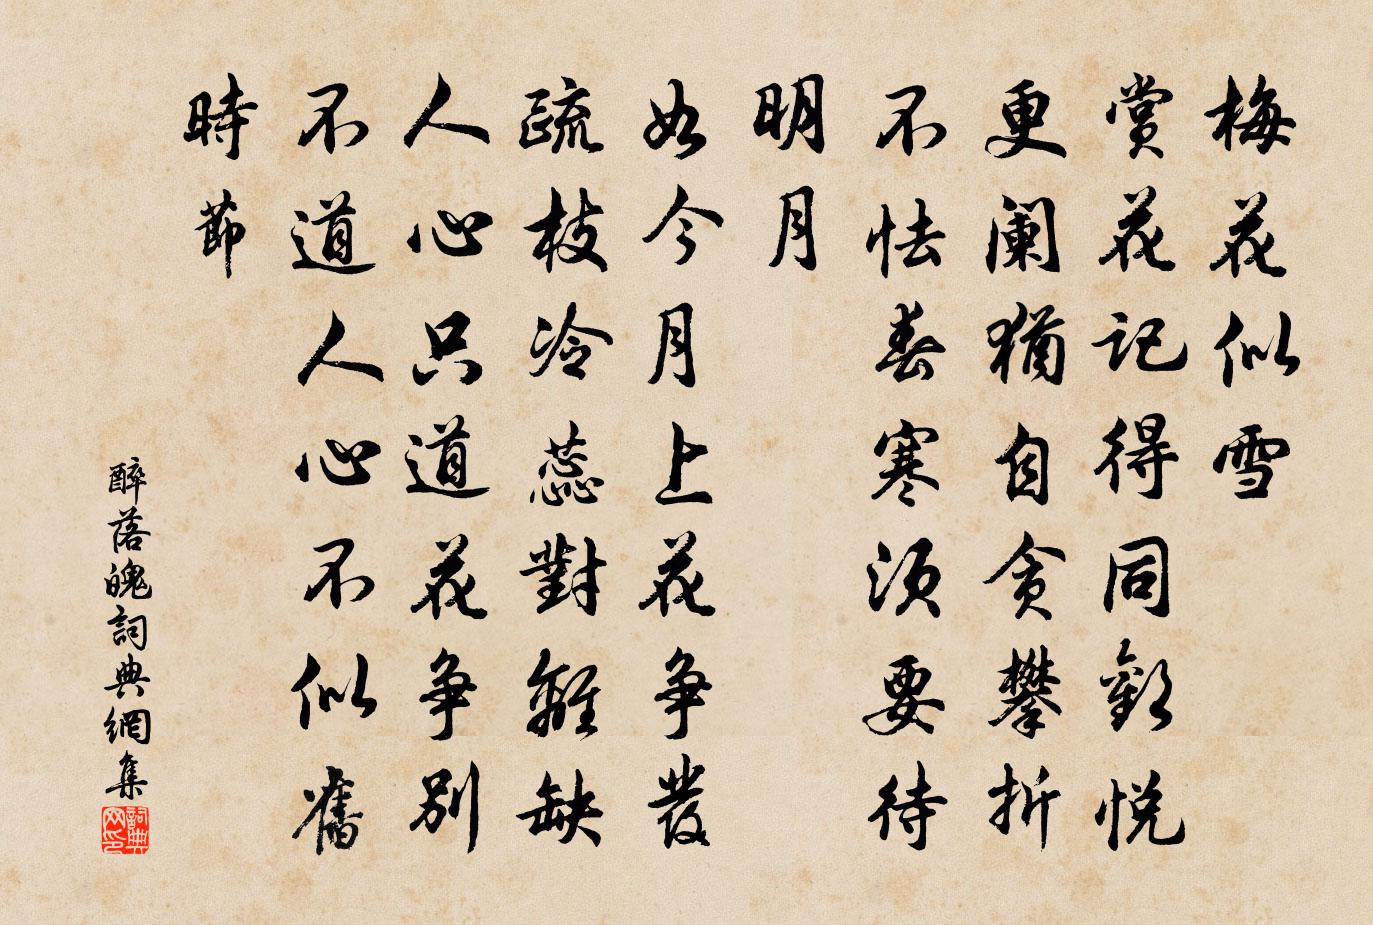 梅花似雪
賞花記得同歡悅
更闌猶自貪攀折
不怯春寒須要待
明月
如今月上花爭發
疏枝冷蕊對離缺
人心只道花爭別
不道人心不似舊
時節
醉落魄詞典網集
詞典网印